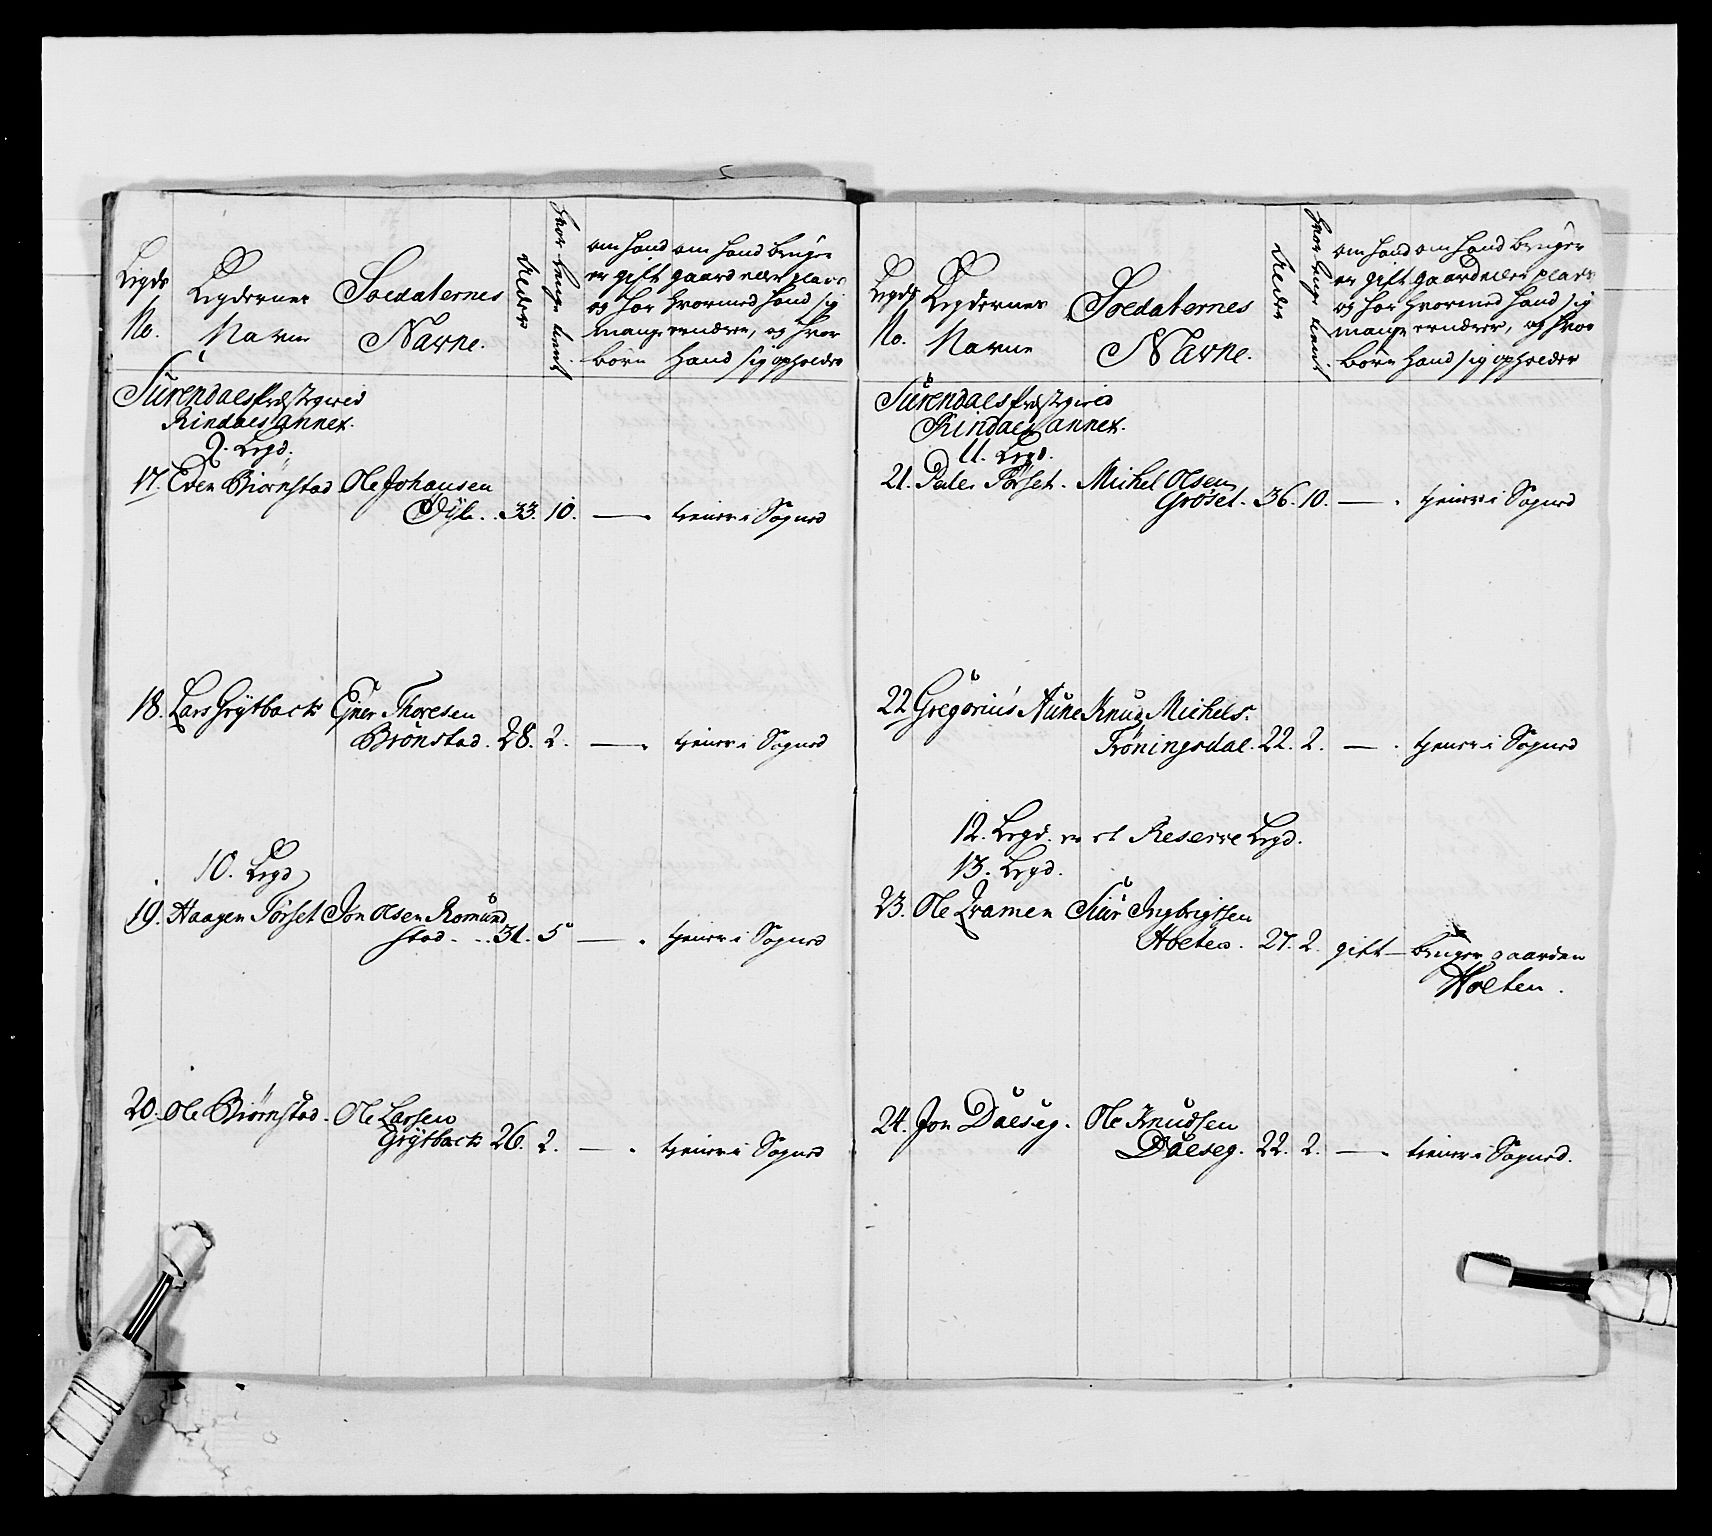 Legds
No.
Legdernes
Navne
Soldaternes
Navne.
Alder
hvor lenge tient
om hand
er gift
og har
mange
børn
om hand bruger
gaard eller plads
hvormed hand sig
ernærer, og hvor
hand sig opholder
Surendals Præstegield
Rindals annex.
9. Legd.
17. Even Biørnstad Ole Johansen
33. 10. — . tiener i Sognet
18. Lars Grytback Ejner Thoresen
Brønstad. 28. 2. — . tiener i Sognet
10. Legd
19. Haagen Tørset Jon Olsen Romund
stad. . . 31. 5 — . tiener i Sognet
20. Ole Biørnstad. Ole Larsen
Grytback 26. 2. — . tiener i Sognet
Legds
No.
Legdernes
Navne
Soldaternes
Navne.
Alder
hvor lenge tient
om hand
er gift
og har
mange
børn
om hand bruger
gaard eller plads
hvormed hand sig
ernærer, og hvor
hand sig opholder
Surendals Præstegield
Rindals annex.
11. Legd.
21. Peder Tørset. Michel Olsen
Grøset. 36. 10. — . tiener i Sognet
22 Gregorius Aune Knud Michels:
Trøningsdal. 22. 2. — . tiener i Sognet
12. Legd. er et Reserve Legd.
13. Legd.
23. Ole Qvamen Siur Ingbrigtsen
Holten. 27. 2. gift — bruger gaarden
Holten.
24. Jon Dalseg. Ole Knudsen
Dalseg. 22. 2. — . tiener i Sognet.